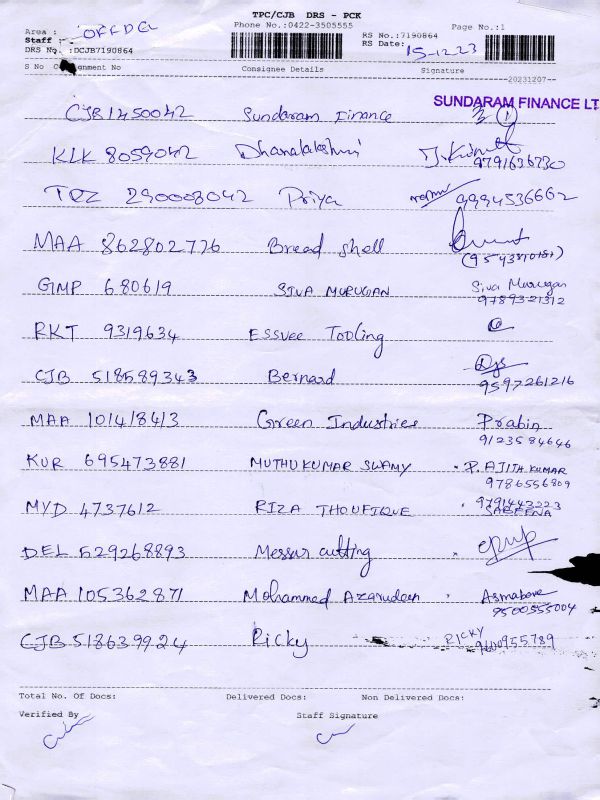 TPC/CJB DRS - PCK
Phone No.:0422-3505555
Page No.:1
Area : OFFDEL
RS No.:7190864
Staff :
RS Date: 15-12-23
DRS No. :DCJB7190864
S No Consignment No Consignee Details Signature
20231207
SUNDARAM FINANCE LT
CJB1450042 Sundaram Finance 1
KLK 8059042 Dhanalakshmi J. Kumar
9791636730
TRZ 290008042 Priya 9994536662
MAA 862802776 Bread shell
GMP 680619 SIVA MURUGAN Siva Murugan
9789321312
RKT 9319634 ESSVEE Tooling
CJB 518589343 Bernard
9597261216
MAA 101418413 Green Industries Prabin
9123584646
KUR 695473881 MUTHUKUMAR SWAMY P. AJITH KUMAR
9786556809
MYD 4737612 RIZA THOUFIQUE 9791443223
SABEENA
DEL 529268893 Messur cutting
MAA 105362871 Mohammed Azarudeen Asmabove
9500555004
CJB 518639924 Ricky RICKY
9600955789
Total No. Of Docs: Delivered Docs: Non Delivered Docs:
Verified By Staff Signature